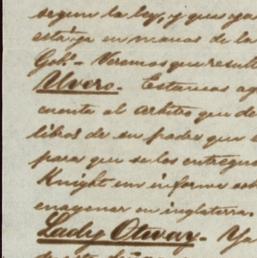 segun la ley, y que ya
este en manos de la
Gob.- Veremos que result
Uvero.- Estamos ag
cuenta al arbitro que de
libros de su poder que
para que se los entregue
Knight un informe sob
enagenar en inglaterra.
Lady Otway.- Ya